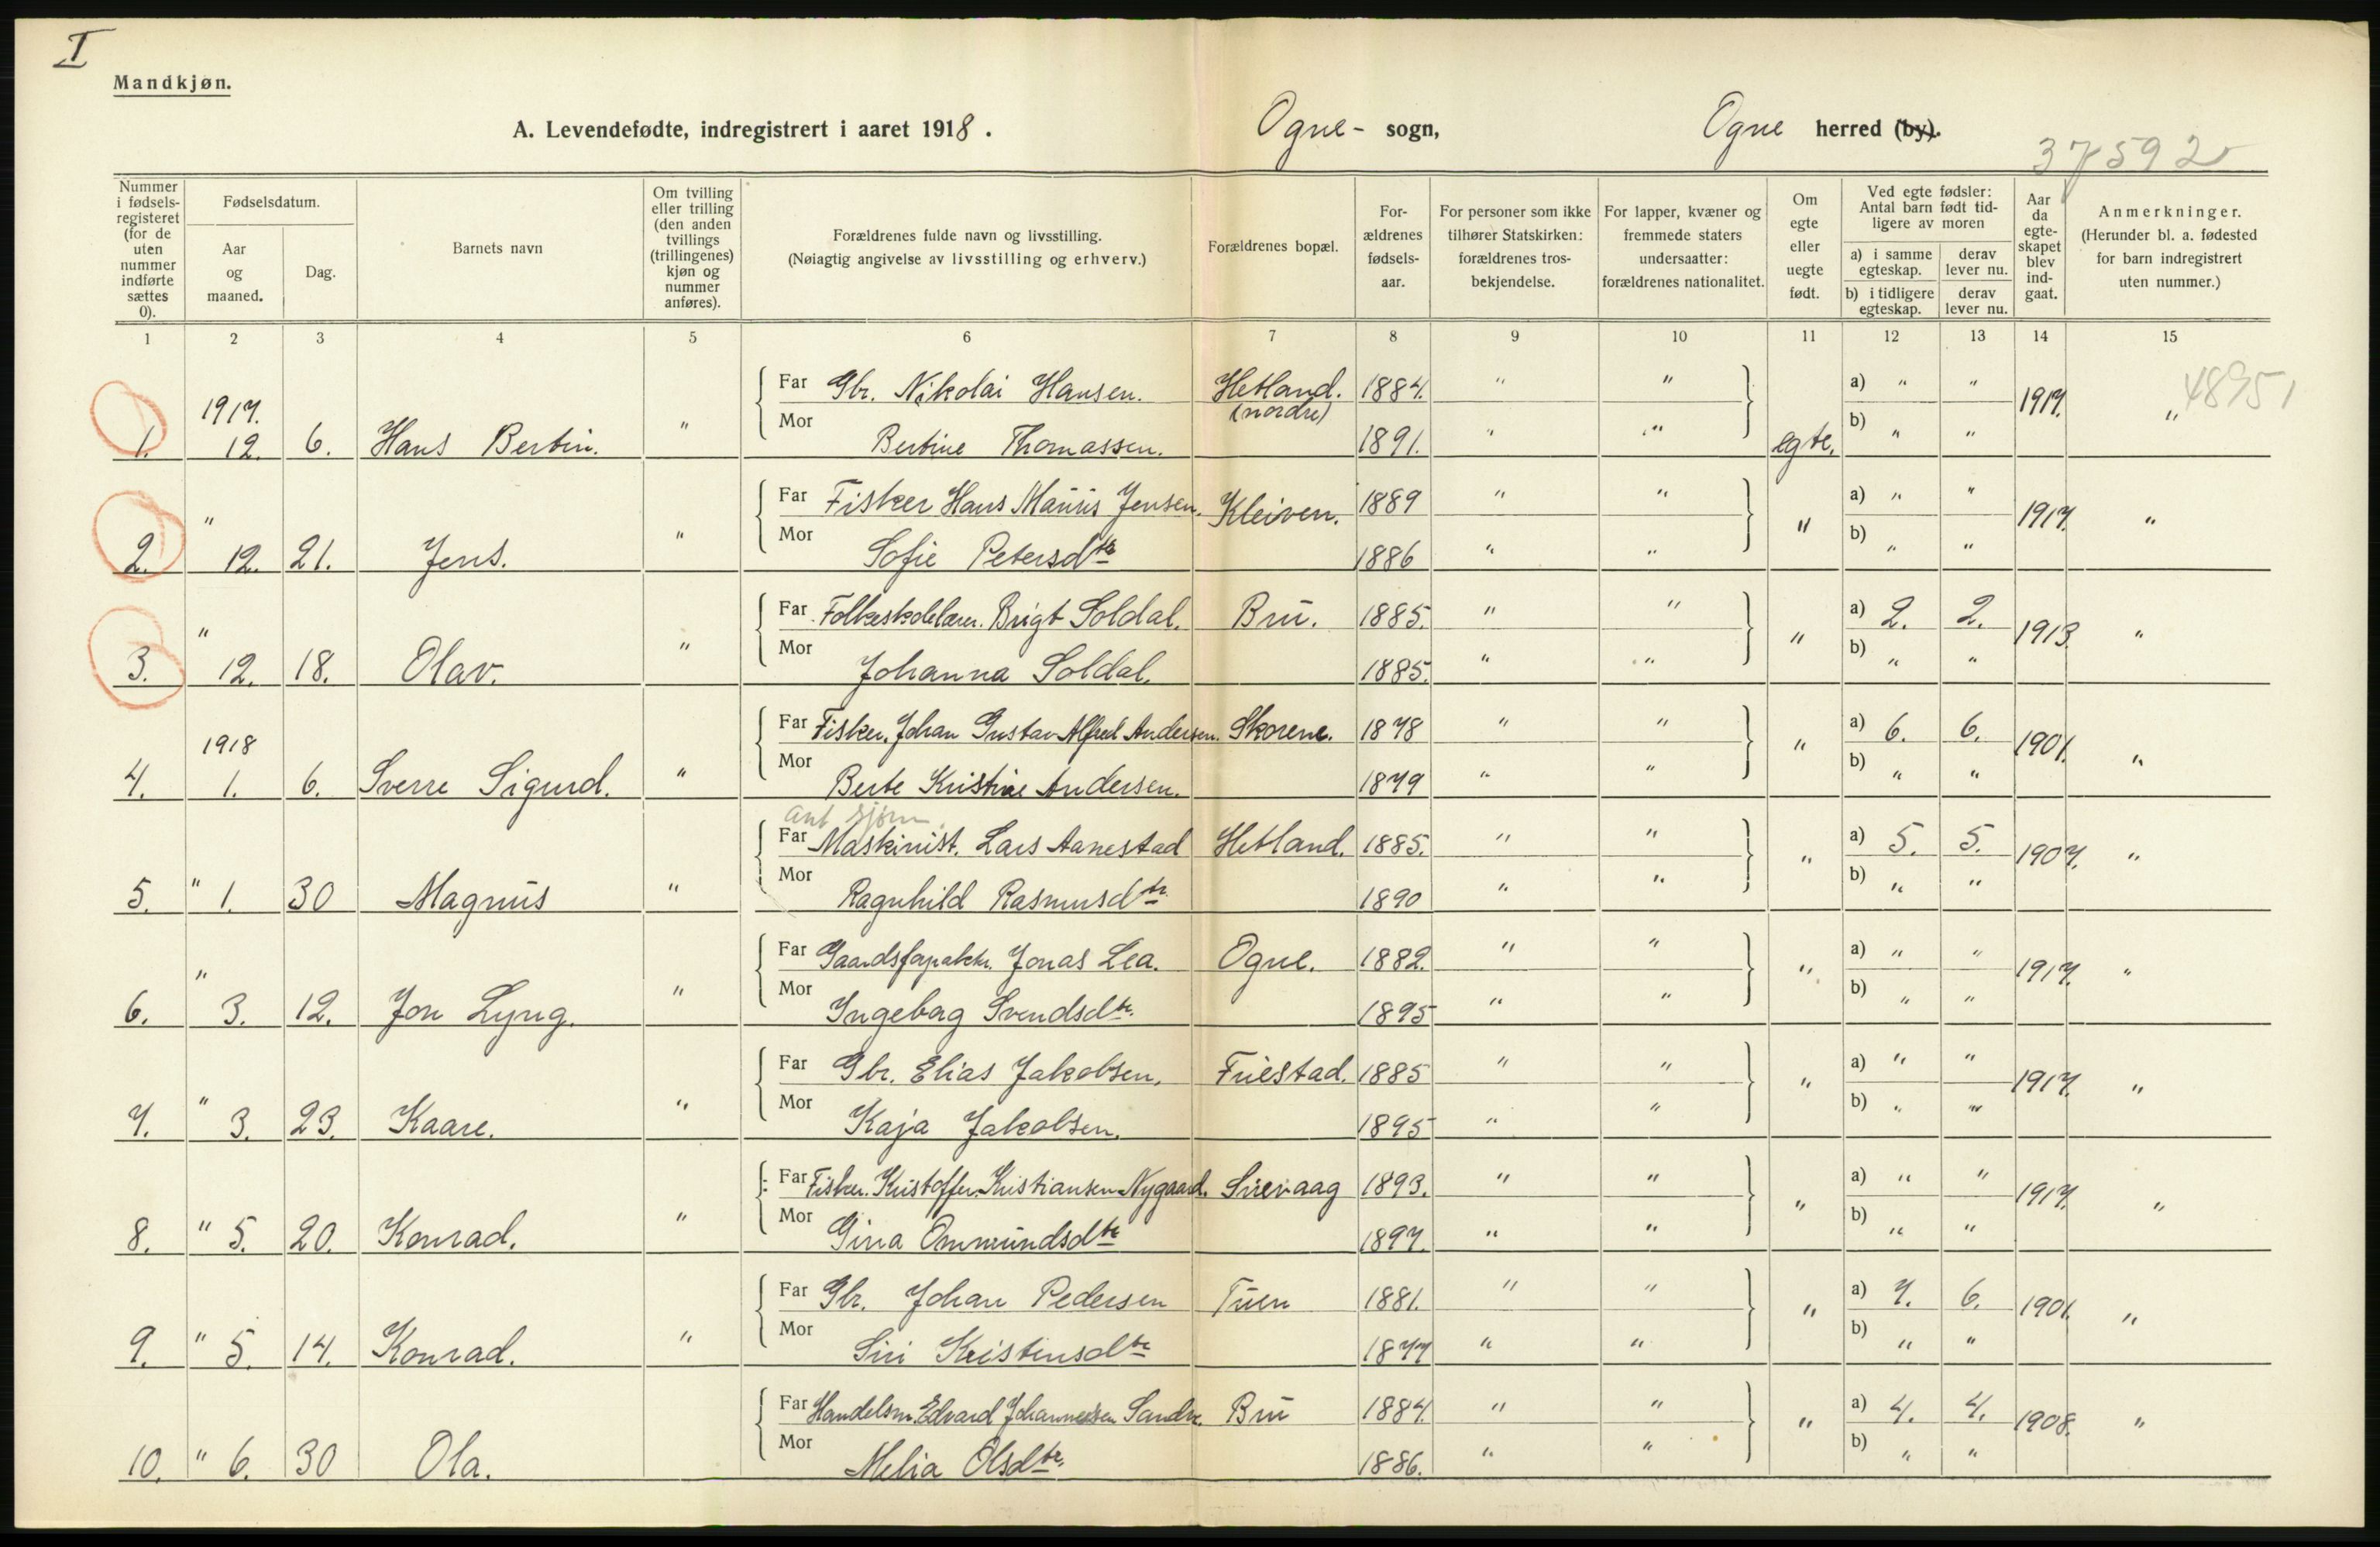 I
Mandkjøn.
A. Levendefødte, indregistrert i aaret 1918. Ogne- sogn, Ogne herred (by).
37592
Nummer i fødsels-registeret (for de uten nummer indførte sættes 0).
Fødselsdatum.
Aar og maaned.
Dag.
Barnets navn
Om tvilling eller trilling (den anden tvillings (trillingenes) kjøn og nummer anføres).
Forældrenes fulde navn og livsstilling.
(Nøiagtig angivelse av livsstilling og erhverv.)
Forældrenes bopæl.
For-ældrenes fødsels-aar.
For personer som ikke tilhører Statskirken: forældrenes tros-bekjendelse.
For lapper, kvæner og fremmede staters undersaatter: forældrenes nationalitet.
Om egte eller uegte født.
Ved egte fødsler: Antal barn født tid-ligere av moren
a) i samme egteskap.
derav lever nu.
b) i tidligere egteskap.
derav lever nu.
Aar da egte-skapet blev ind-gaat.
Anmerkninger.
(Herunder bl. a. fødested for barn indregistrert uten nummer.)
1 2 3 4 5 6 7 8 9 10 11 12 13 14 15
48951
1917.
Far Gbr. Nikolai Hansen. Hetland. (nordre) 1884. " " a) " " 1917. "
1. 12. 6. Hans Bertin. " Mor Bertine Thomassen. 1891. " " egte. b) " "
" Far Fisker Hans Maurus Jensen. Kleiven. 1889 " " " a) " " 1917. "
2. 12. 21. Jens. " Mor Sofie Petersdtr 1886 " " b) " "
" Far Folkeskolelærer. Brigt Soldal. Bru. 1885. " " " a) 2. 2. 1913. "
3. 12. 18. Olav. " Mor Johanna Soldal. 1885. " " b) " "
1918
Far Fisker. Johan Gustav Alfred Andersen. Skorene. 1878 " " " a) 6. 6. 1901. "
4. 1. 6. Sverre Sigurd. " Mor Berte Kristine Andersen. 1879 " " b) " "
ant sjøm
Far Maskinist. Lars Aanestad Hetland. 1885. " " " a) 5. 5. 1907. "
5. " 1. 30 Magnus " Mor Ragnhild Rasmusdtr 1890 " " b) " "
" Far Gaardsforpakter. Jonas Lea. Ogne. 1882. " " " a) " " 1917. "
6. 3. 12. Jon Lyng. " Mor Ingebag Svendsdtr. 1895 " " b) " "
" Far Gbr. Elias Jakobsen. Fuestad. 1885 " " " a) " " 1917. "
7. 3. 23. Kaare. " Mor Kaja Jakobsen. 1895 " " b) " "
Far Fisker. Kristoffer Kristiansen Nygaard. Sirevaag 1893. " " " a) " " 1917. "
8. " 5. 20. Konrad. " Mor Gina Ommundsdtr 1897. " " b) " "
Far Gbr. Johan Pedersen Tuen 1881. " " " a) 7. 6. 1901. "
9. " 5. 14. Konrad. " Mor Siri Kristensdtr 1877 " " b) " "
Far Handelsm. Edvard Johannessen Sandve Bru 1884. " " " a) 4. 4. 1908. "
10. " 6. 30 Ola. Mor Melia Olsdtr. 1886. " " b) " "